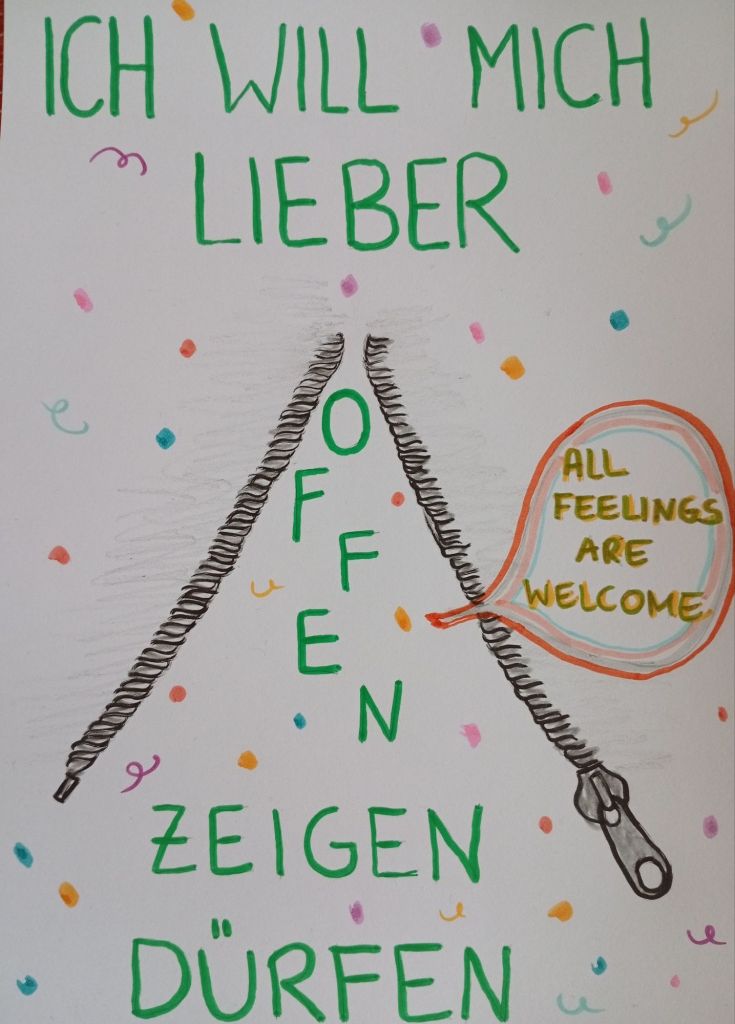 ICH WILL MICH
LIEBER
OFFEN
ALL
FEELINGS
ARE
WELCOME
ZEIGEN
DÜRFEN